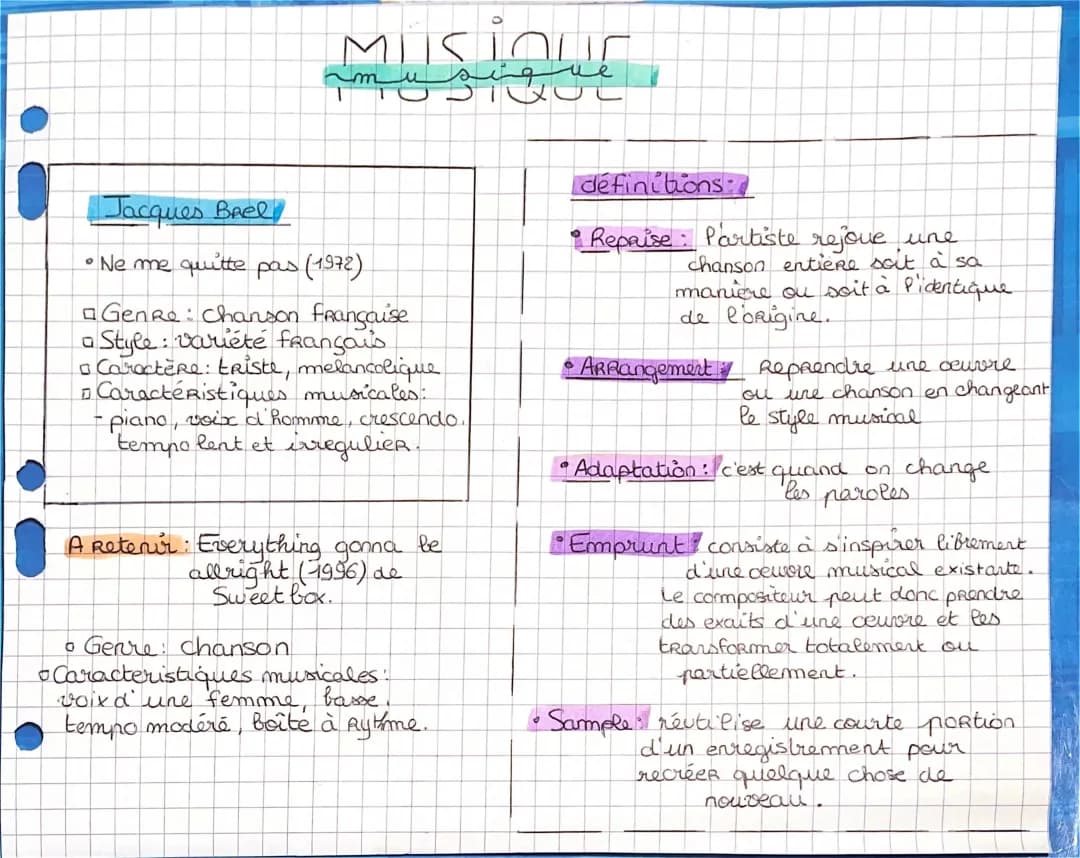 MUSIQUE
musique
Jacques BReel
• Ne me quitte pas (1972)
▫ GenRe : chanson fRançaise
▫ Style : variété fRançais
▫ CaRactèRe : tRiste, melancolique
▫ CaRactéRistiques musicales :
- piano, voix d'homme, crescendo.
tempo lent et irregulieR.
A Retenir : Everything gonna be
allright (1996) de
Sweet box.
▫ Genre : chanson
▫ Caracteristiques musicales :
voix d'une femme, basse,
tempo modéré, boîte à Rythme.
définitions :
• RepRise : l'artiste rejoue une
chanson entièRe soit à sa
manière ou soit à l'identique
de l'oRigine.
• ARRangement : RepRendre une oeuvre
ou une chanson en changeant
le style musical
• Adaptation : c'est quand on change
les paroles
• Emprunt : consiste à s'inspirer librement
d'une oeuvre musical existante.
Le compositeur peut donc pRendre
des exaits d'une oeuvre et les
tRansformer totalement ou
partiellement.
• Sample : réutilise une courte poRtion
d'un enregistrement pour
recréeR quelque chose de
nouveau.